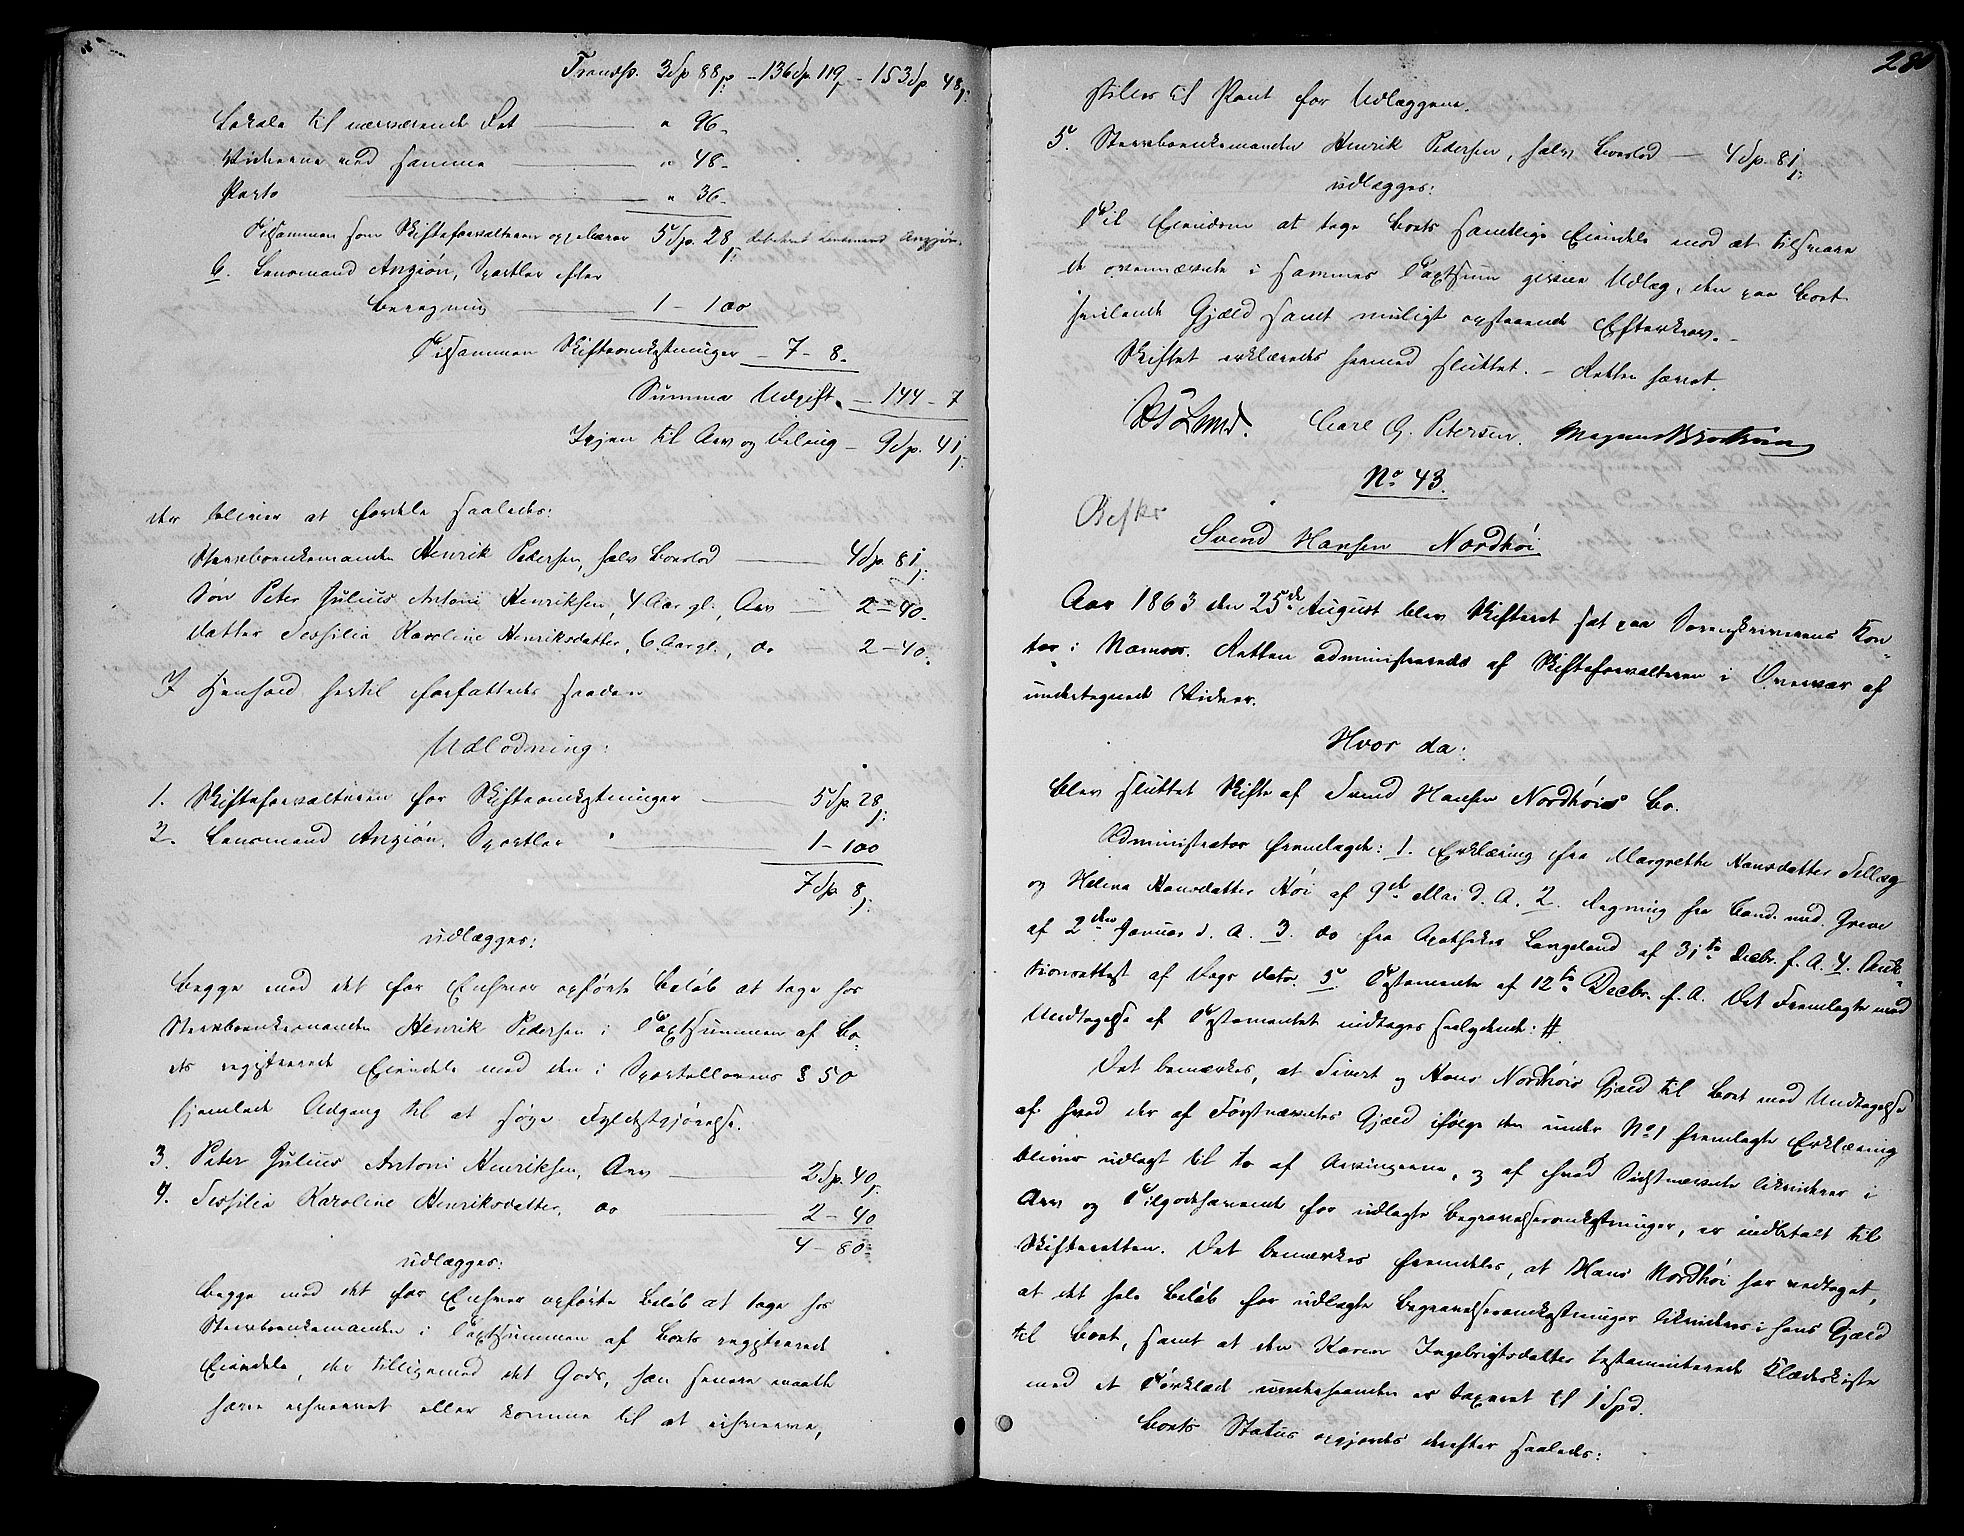 Transp. 3Sp 88ß - 136Sp. 119ß - 153Sp. 48ß:
Lokale til nærværende Ret — " 96 -
Vidnerne med samme — " 48 -
Porto — " 36 -
Tilsammen som Skifteforvalteren oppebærer 5Sp. 28ß
6. Lensmand Anzjøn, Sportler efter
Beregning — 1 - 100
Tilsammen Skifteomkostninger - 7 - 8 -
Summa Udgift - 144 - 7
Igjen til Arv og Deling - 9Sp. 41ß:
der bliver at fordele saaledes:
Sterbboenkemanden Henrik Pedersen, halv Boeslod — 4Sp. 81ß:
Søn Peter Julius Antoni Henriksen, 4 Aar gl., Arv — 2 - 40 -
Datter Sessilia Karoline Henriksdatter, 6 Aar gl., do 2 - 40 -
I Henhold hertil forfattedes saadan
Udlodning:
1. Skifteforvalteren for Skifteomkostninger — 5Sp. 28ß:
2. Lensmand Anzjøn, Sportler " — 1 - 100
7Sp. 8ß:
udlægges:
Begge med det for Enhver opførte Beløb at tage hos
Sterbboenkemanden Henrik Pedersen i Taxtsummen af Bo-
ets registrerede Eiendele med den i Sportellovens § 50
hjemlede Adgang til at søge Fyldestgjørelse.
3. Peter Julius Antoni Henriksen, Arv — 2Sp. 40ß:
4. Sessilia Karoline Henriksdatter, do — 2 - 40
4 - 80
udlægges:
Begge med det for Enhver opførte Beløb at tage hos
Sterbboenkemanden i Taxtsummen af Boets registrerede
Eiendele, der tilligemed det Gods, han senere maatte
have erhvervet eller komme til at erhverve,
28
stilles til Pant for Udlæggene.
5. Sterbboenkemanden Henrik Pedersen, halv Boeslod — 4Sp. 81ß:
udlægges:
Til Eiendom at tage Boets samtlige Eiendele mod at tilsvare
de ovennævnte i sammes Taxtsum givne Udlæg, den paa Boet
heftende Gjæld samt muligt opstaaende Efterkrav. -
Skiftet erklæredes hermed sluttet. - Retten hævet.
Lund. Carl G. Petersen. Magnus
No 43.
Besk.
Svend Hansen Nordhøi
Aar 1863 den 25de August blev Skifteret sat paa Sorenskriverens Kon-
tor i Namsos. Retten administreredes af Skifteforvalteren i Overvær af
undertegnede Vidner.
Hvor da:
blev sluttet Skifte af Svend Hansen Nordhøis Bo.
Administrator fremlagde: 1. Erklæring fra Margrethe Hansdatter Selleg
og Helena Hansdatter Høi af 9de Mai d. A. 2. Regning fra Cand. med. Greve
af 2den Januar d. A. 3. do fra Apotheker Langeland af 31te Decbr. f. A. 4. Auk-
tionsattest af Dags dato. 5. Testamente af 12te Decbr. f. A. Det Fremlagte med
Undtagelse af Testamentet indtages saalydende: #
Det bemærkes, at Sivert og Hans Nordhøis Gjæld til Boet med Undtagelse
af hvad der af Førstnævntes Gjæld ifølge den under No 1 fremlagte Erklæring
bliver udlagt til to af Arvingerne, og af hvad Sidstnævnte likviderer i
Arv og Tilgodehavende for udlagte Begravelsesomkostninger, er indbetalt til
Skifteretten. Det bemærkes fremdeles, at Hans Nordhøi har vedtaget,
at det hele Beløb for udlagte Begravelsesomkostninger likvideres i hans Gjæld
til Boet, samt at den Karen Ingebrigtsdatter testamenterede Klædeskiste
med et Forklæde underhaanden er taxeret til 1 Spd.
Boets Status opgjordes derefter saaledes: